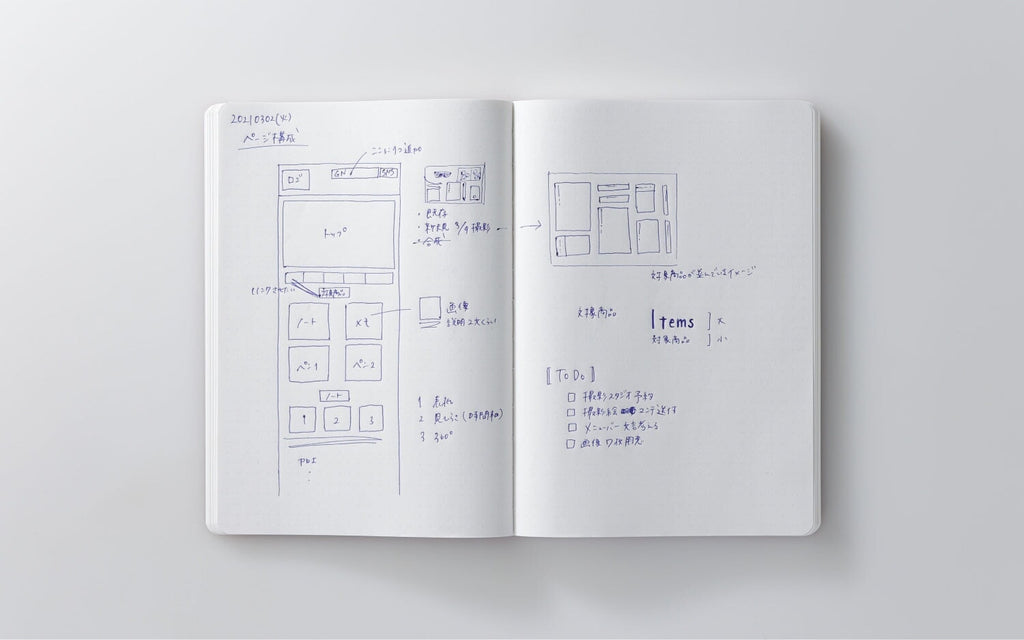 20210302(火)
ページ構成
ここに1つ追加
ロゴ
GN
SNS
トップ
・既存
・新規 3/9 撮影
リンクさせたい
対象商品
ノート
メモ
画像
説明 2文くらい
ペン1
ペン2
ノート
1
2
3
1 表紙
2 見ひらき
3 360°
対象商品が並んでいるイメージ
対象商品
Items 大
対象商品 小
ToDo
□ 撮影スタジオ予約
□ 撮影絵コンテ送付
□ メニューバー 文言考える
□ 画像 7枚用意